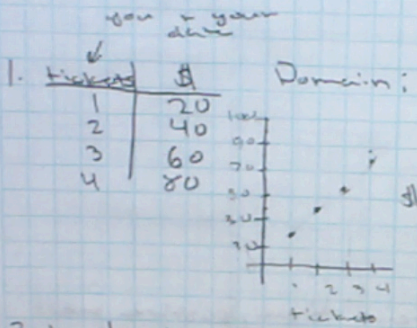 you + your
date
1. tickets $ Domain:
1 20
2 40
3 60
4 80
100
90
70
50
30
10
1 2 3 4
tickets
$